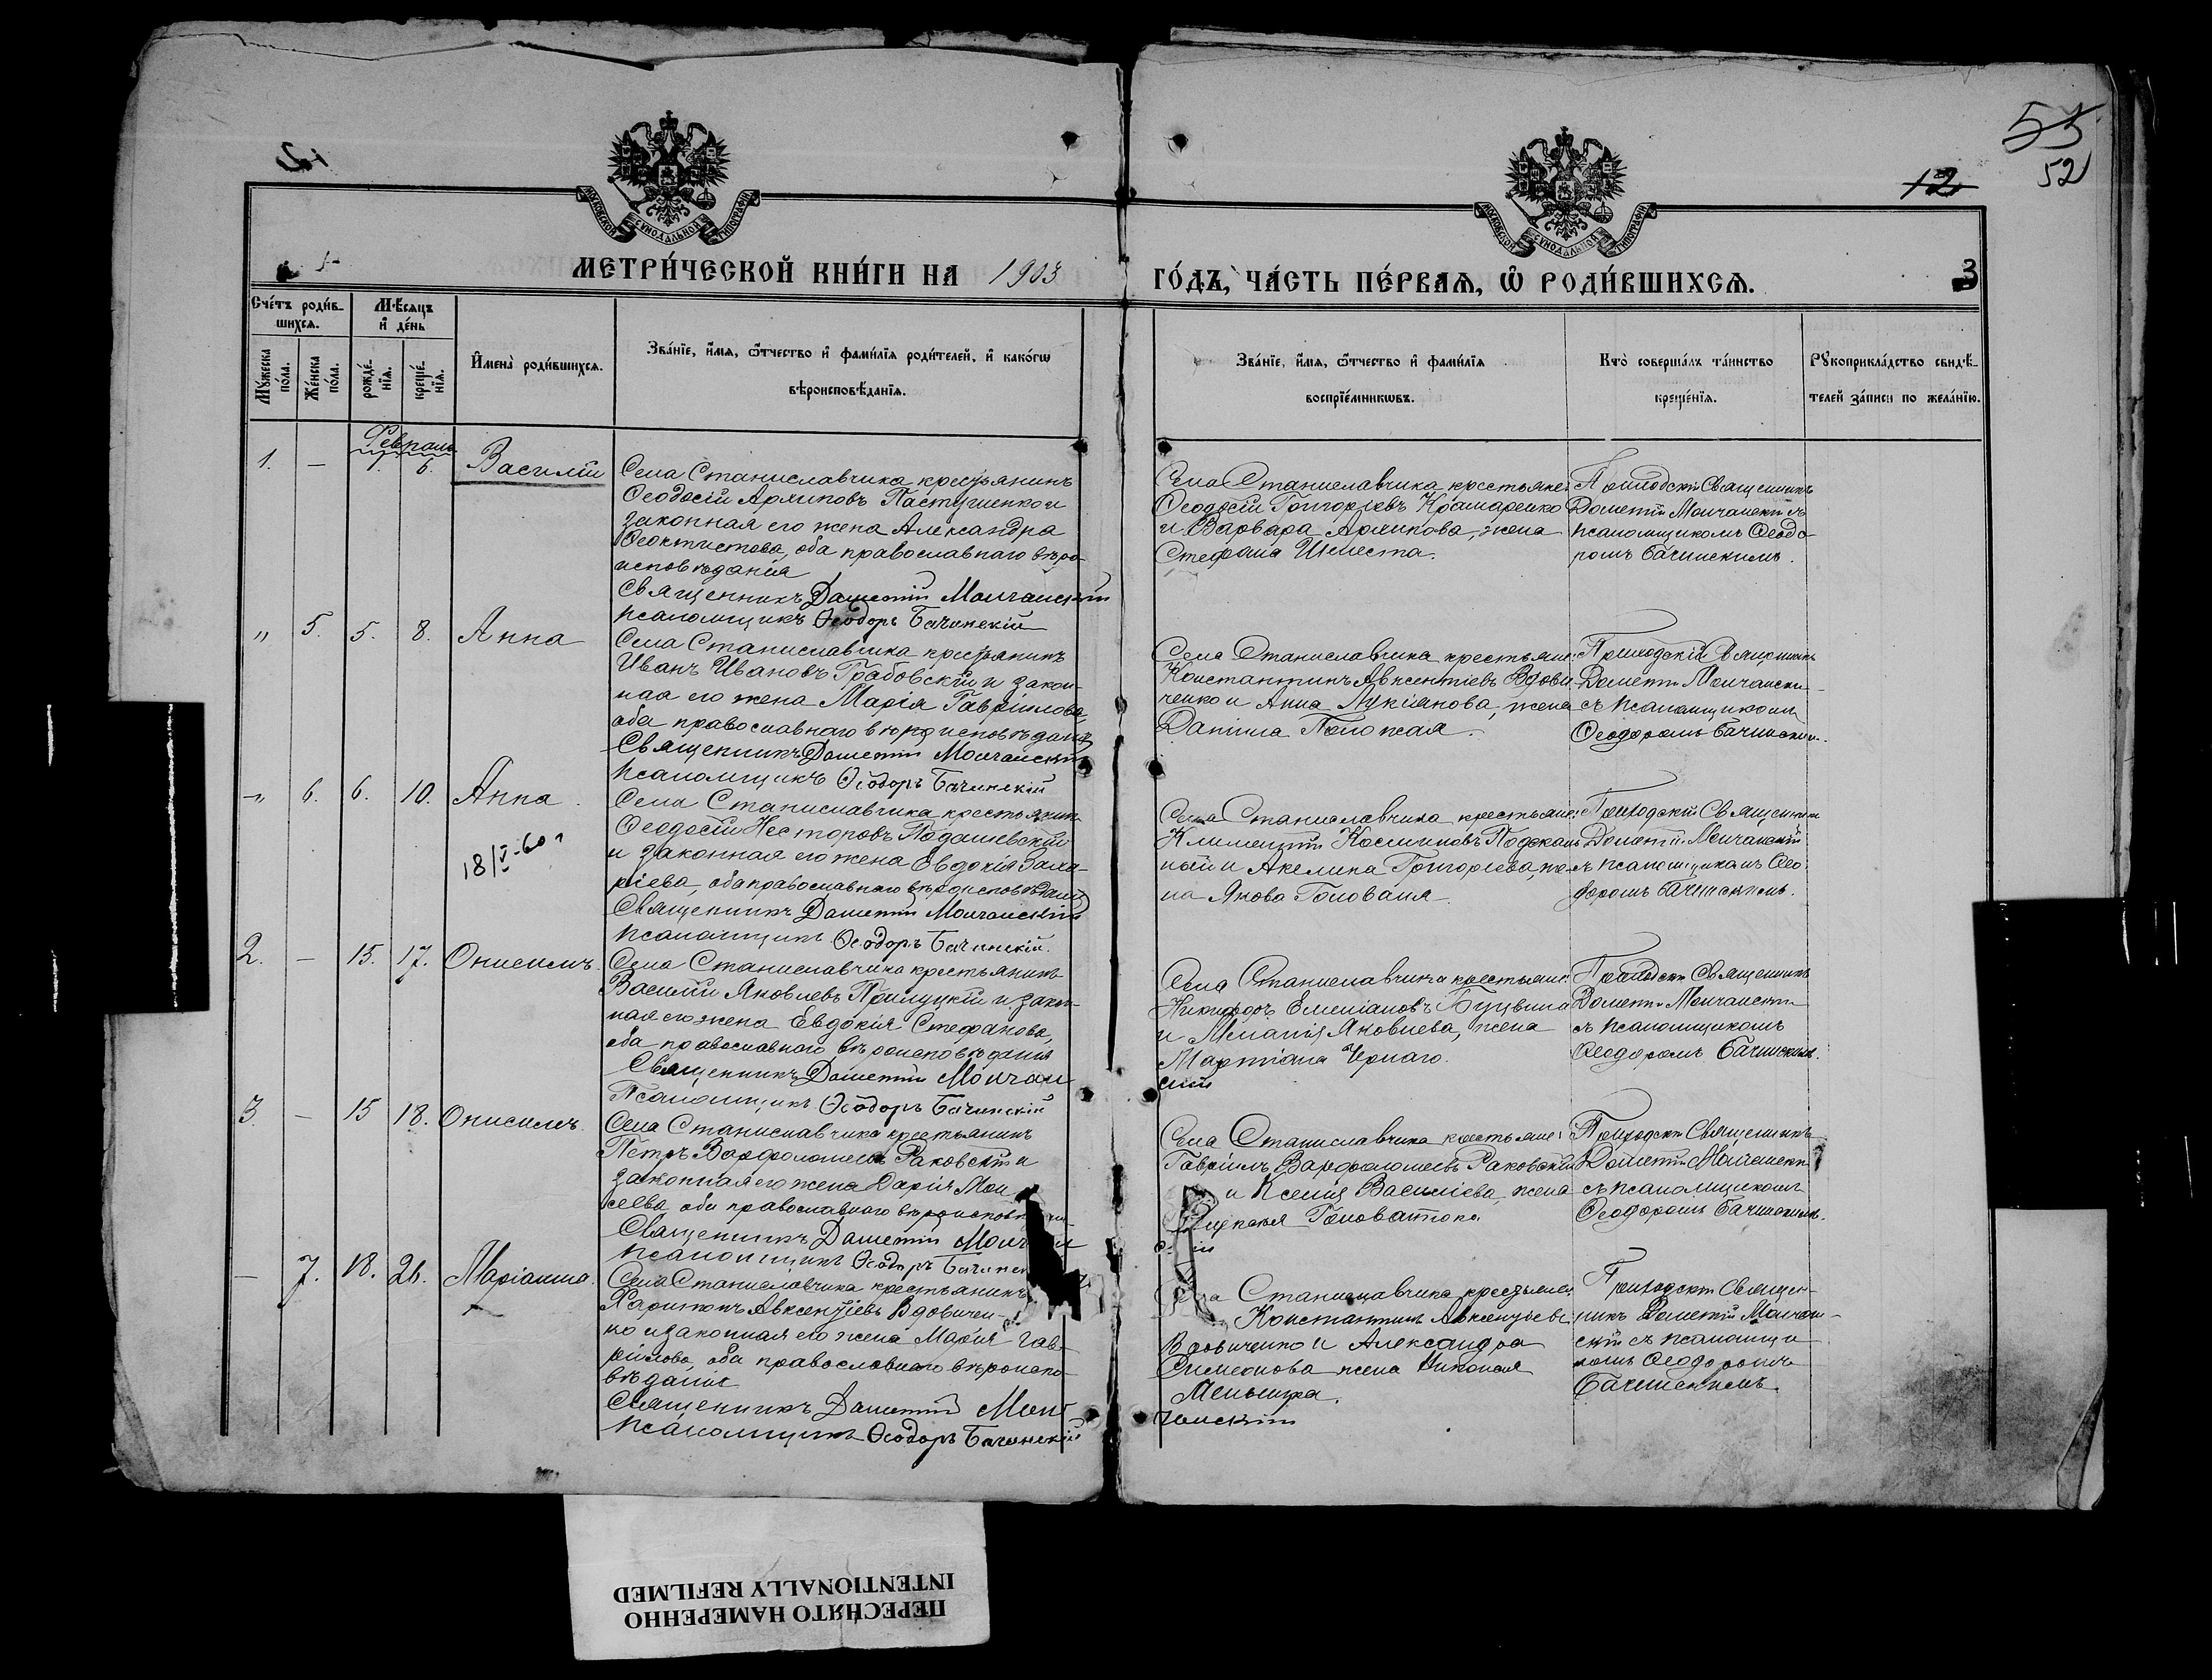 12
55
52
12
МОСКОВСКОЙ СУНОДАЛЬНОЙ ТИПОГРАФІИ
МОСКОВСКОЙ СУНОДАЛЬНОЙ ТИПОГРАФІИ
МЕТРИ́ЧЕСКОЙ КНИ́ГИ НА 1903
ГО́ДЪ, ЧА́СТЬ ПЕ́РВАЯ, Ѡ҆ РОДИ́ВШИХСЯ.
3
Сче́тъ роди́в-
шихся.
Му́жеска по́ла.
Же́нска по́ла.
Мѣ́сяцъ
и҆ де́нь
рожде́-
нїя.
креще́-
нїя.
И҆мена̀ роди́вшихся.
Зва́нїе, и҆́мя, ѻ҆́тчество и҆ фами́лїя роди́телей, и҆ како́гѡ
вѣроисповѣ́данїя.
Зва́нїе, и҆́мя, ѻ҆́тчество и҆ фами́лїя
воспрїе́мникѡвъ.
Кто̀ соверша́лъ та́инство
креще́нїя.
Рꙋкоприкла́дство свидѣ́-
телей за́писи по жела́нїю.
Февраль
1. — 1. 6. Василій
Села Станиславчика крестьянинъ
Ѳеодосій Архиповъ Пастушенко и
законная его жена Александра
Ѳеоктистова, оба православнаго вѣро-
исповѣданія
Священникъ Дометій Молчанскій
Псаломщикъ Ѳеодоръ Бачинскій
Села Станиславчика крестьяне:
Ѳеодосій Григоріевъ Крамаренко
и Варвара Архипова, жена
Стефана
Приходскій Священникъ
Дометій Молчанскій съ
псаломщикомъ Ѳеодо-
ромъ Бачинскимъ.
" 5. 5. 8. Анна
Села Станиславчика крестьянинъ
Иванъ Ивановъ Грабовскій и закон-
ная его жена Марія Гавріилова,
оба православнаго вѣроисповѣданія
Священникъ Дометій Молчанскій
Псаломщикъ Ѳеодоръ Бачинскій
Села Станиславчика крестьяне:
Константинъ Авксентіевъ Вдови-
ченко и Анна Лукіянова, жена
Даніила
Приходскій Священникъ
Дометій Молчански
съ псаломщикомъ
Ѳеодоромъ Бачинским.
" 6. 6. 10. Анна.
18/V-60 г
Села Станиславчика крестьянинъ
Ѳеодосій Несторовъ Подашевскій
и законная его жена Евдокія Заха-
ріева, оба православнаго вѣроисповѣданія
Священникъ Дометій Молчанскій
Псаломщикъ Ѳеодоръ Бачинскій.
Села Станиславчика крестьяне:
Климентій Косминовъ
ный и Акелина Григоріева, же-
на Якова Голованя
Приходскій Священникъ
Дометій Молчанскій
съ псаломщикомъ Ѳео-
доромъ Бачинскимъ.
2. — 15. 17. Онисимъ.
Села Станиславчика крестьянинъ
Василій Яковлевъ Прилуцкій и закон-
ная его жена Евдокія Стефанова,
оба православнаго вѣроисповѣданія
Священникъ Дометій Молчан
Псаломщикъ Ѳеодоръ Бачинскій
Села Станиславчика крестьяне:
Никифоръ Емеліановъ
и Меланія Яковлева, жена
Мартіана Чернаго.
скій
Приходскій Священникъ
Дометій Молчанскій
съ псаломщикомъ
Ѳеодоромъ Бачинскимъ.
3. — 15 18. Онисимъ
Села Станиславчика крестьянинъ
Петръ Варфоломеевъ Раковскій и
законная его жена Дарія Мои
сеева, оба православнаго
Священникъ Дометій
Псаломщикъ Ѳеодоръ
Села Станиславчика крестьяне:
Гавріилъ Варфоломеевъ Раковскій
и Ксенія Василіева, жена
Приходскій Священникъ
Дометій Молчанскій
съ псаломщикомъ
Ѳеодоромъ Бачинскимъ.
— 7. 18. 26. Маріанна.
Села Станиславчика крестьянинъ
Харитонъ Авксентіевъ Вдовичен-
ко и законная его жена Марія Гав-
ріилова, оба православнаго вѣроиспо-
вѣданія
Священникъ Дометій Мол
Псаломщикъ Ѳеодоръ Бачинскій
Станиславчика крестьяне:
Константинъ Авксентіевъ
Вдовиченко и Александра
Симеонова жена Николая
чанскій
Приходскій Священ-
никъ Дометій Молчан-
скій съ псаломщи
комъ Ѳеодоромъ
Бачинскимъ.
ПЕРЕСНЯТО НАМЕРЕННО
INTENTIONALLY REFILMED